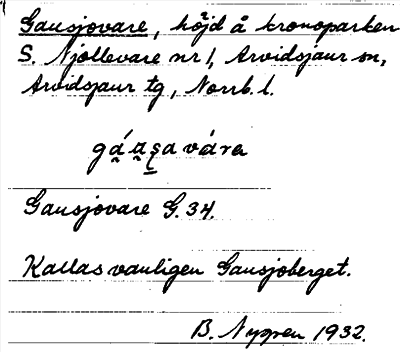 Gausjovare, höjd å kronoparken
S. Njallevare nr 1, Arvidsjaur sn,
Arvidsjaur tg, Norrb. l.
gá̮a̮s̮a vára
Gausjovare G. 34.
Kallas vanligen Gausjoberget.
B. Nygren 1932.